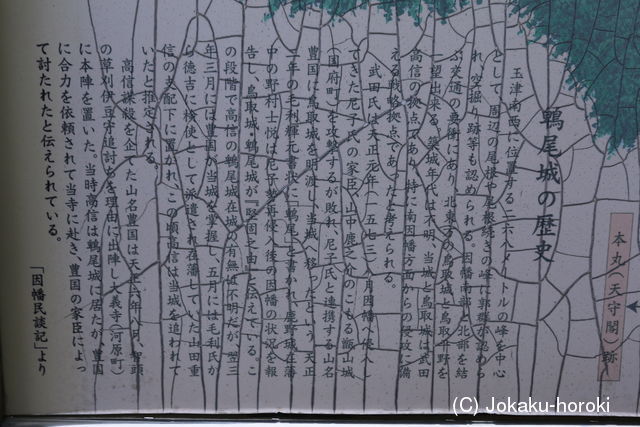 鵯尾城の歴史
玉津南西に位置する二六八メートルの峰を中心
として、周辺の尾根や尾根続きの峰に郭群が認めら
れ、空掘り跡等も認められる。因幡南部と北部を結
ぶ交通の要衝にあり、北東方の鳥取城と鳥取平野を
一望出来る。築城年代は不明、当城と鳥取城は武田
高信の拠点であり、特に南因幡方面からの侵攻に備
える戦略拠点であったと考えられる。
武田氏は天正元年（一五七三）、月因幡へ侵入し
てきた尼子氏の家臣、山中鹿之介のこもる甑山城
（国府町）を攻撃するが敗れ、尼子氏と連携する山名
豊国に鳥取城を明渡し当城へ移ったという。天正
二年の毛利輝元書状に「鵯尾」と書かれ、鹿野城在番
中の野村士悦は尼子勢再侵入後の因幡の状況を報
告し、鳥取城、鵯尾城が『堅固之由』と伝えている。こ
の段階で高信の鵯尾城在城の有無は不明だが、翌三
年三月には豊国が当城を掌握し、五月には毛利氏か
ら徳吉に検使として派遣され在藩していた山田重
信の支配下に置かれ、この頃高信は当城を追われて
いたと推定される。
高信謀殺を企てた山名豊国は天正六年八月、智頭
の草刈伊豆守追討ちを理由に出陣し大義寺（河原町）
に本陣を置いた。当時高信は鵯尾城に居たが、豊国
に合力を依頼されて当寺に赴き、豊国の家臣によっ
て討たれたと伝えられている。
「因幡民談記」より
本丸（天守閣）跡
(C) Jokaku-horoki